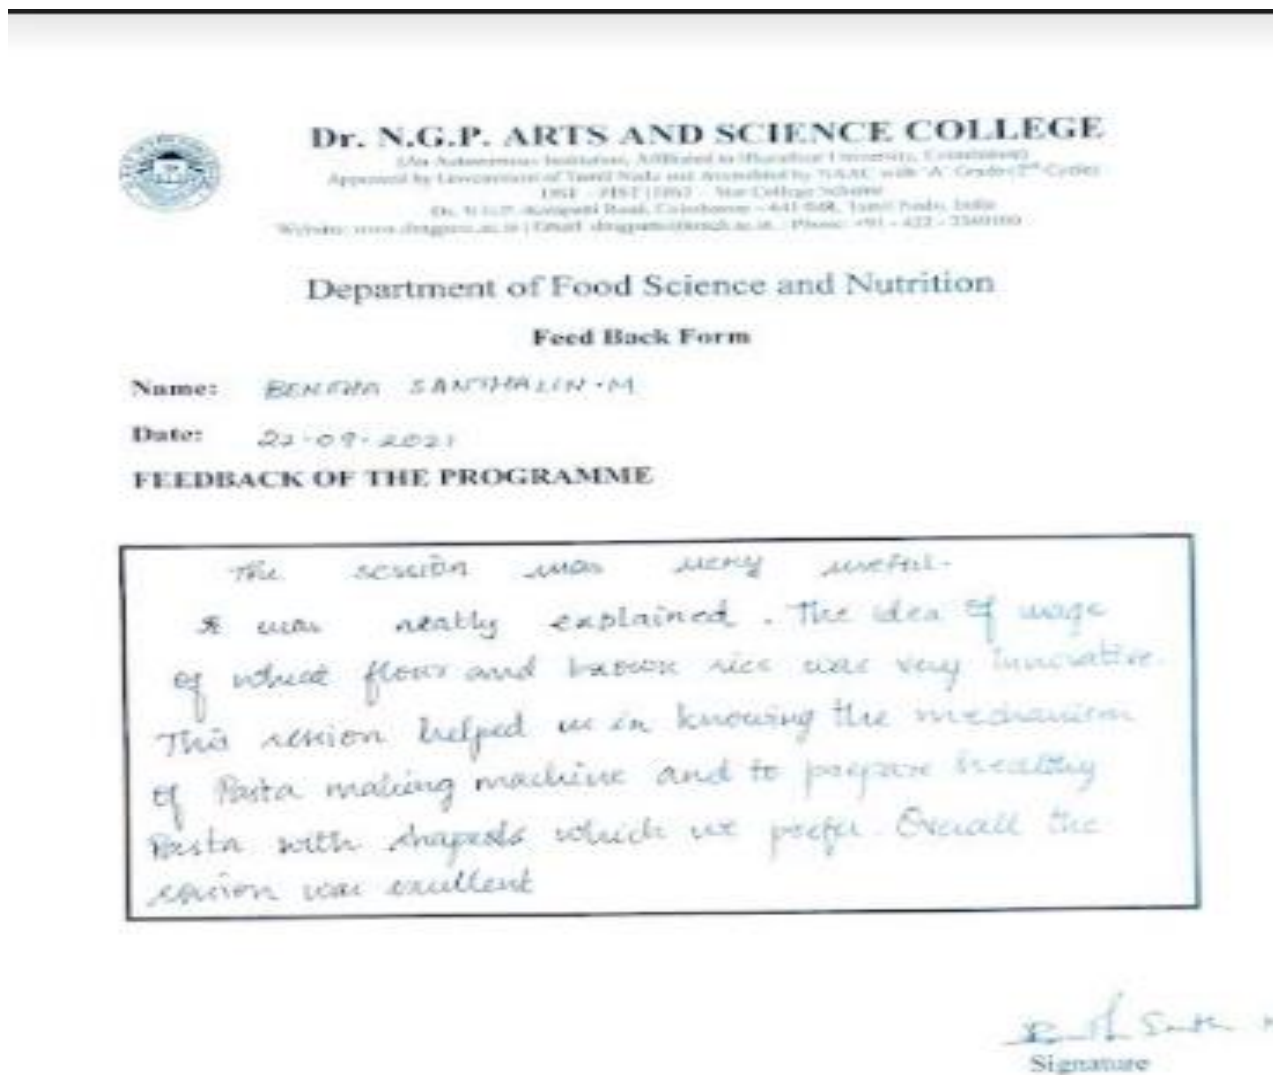 Dr. N.G.P. ARTS AND SCIENCE COLLEGE
(An Autonomous Institution, Affiliated to Bharathiar University, Coimbatore)
Approved by Government of Tamil Nadu and Accredited by NAAC with 'A' Grade (2nd Cycle)
Star College Scheme
Dr. N.G.P.-Kalapatti Road, Coimbatore - 641 048, Tamil Nadu, India
Website: www.drngpasc.ac.in | Email:
Department of Food Science and Nutrition
Feed Back Form
Name: SANTHALIN.M
Date: 22-09-2021
FEEDBACK OF THE PROGRAMME
The session was very useful.
It was neatly explained. The idea of usage
of wheat flour and brown rice was very innovative.
This session helped us in knowing the mechanism
of Pasta making machine and to prepare healthy
Pasta with which we prefer. Overall the
session was excellent
Signature